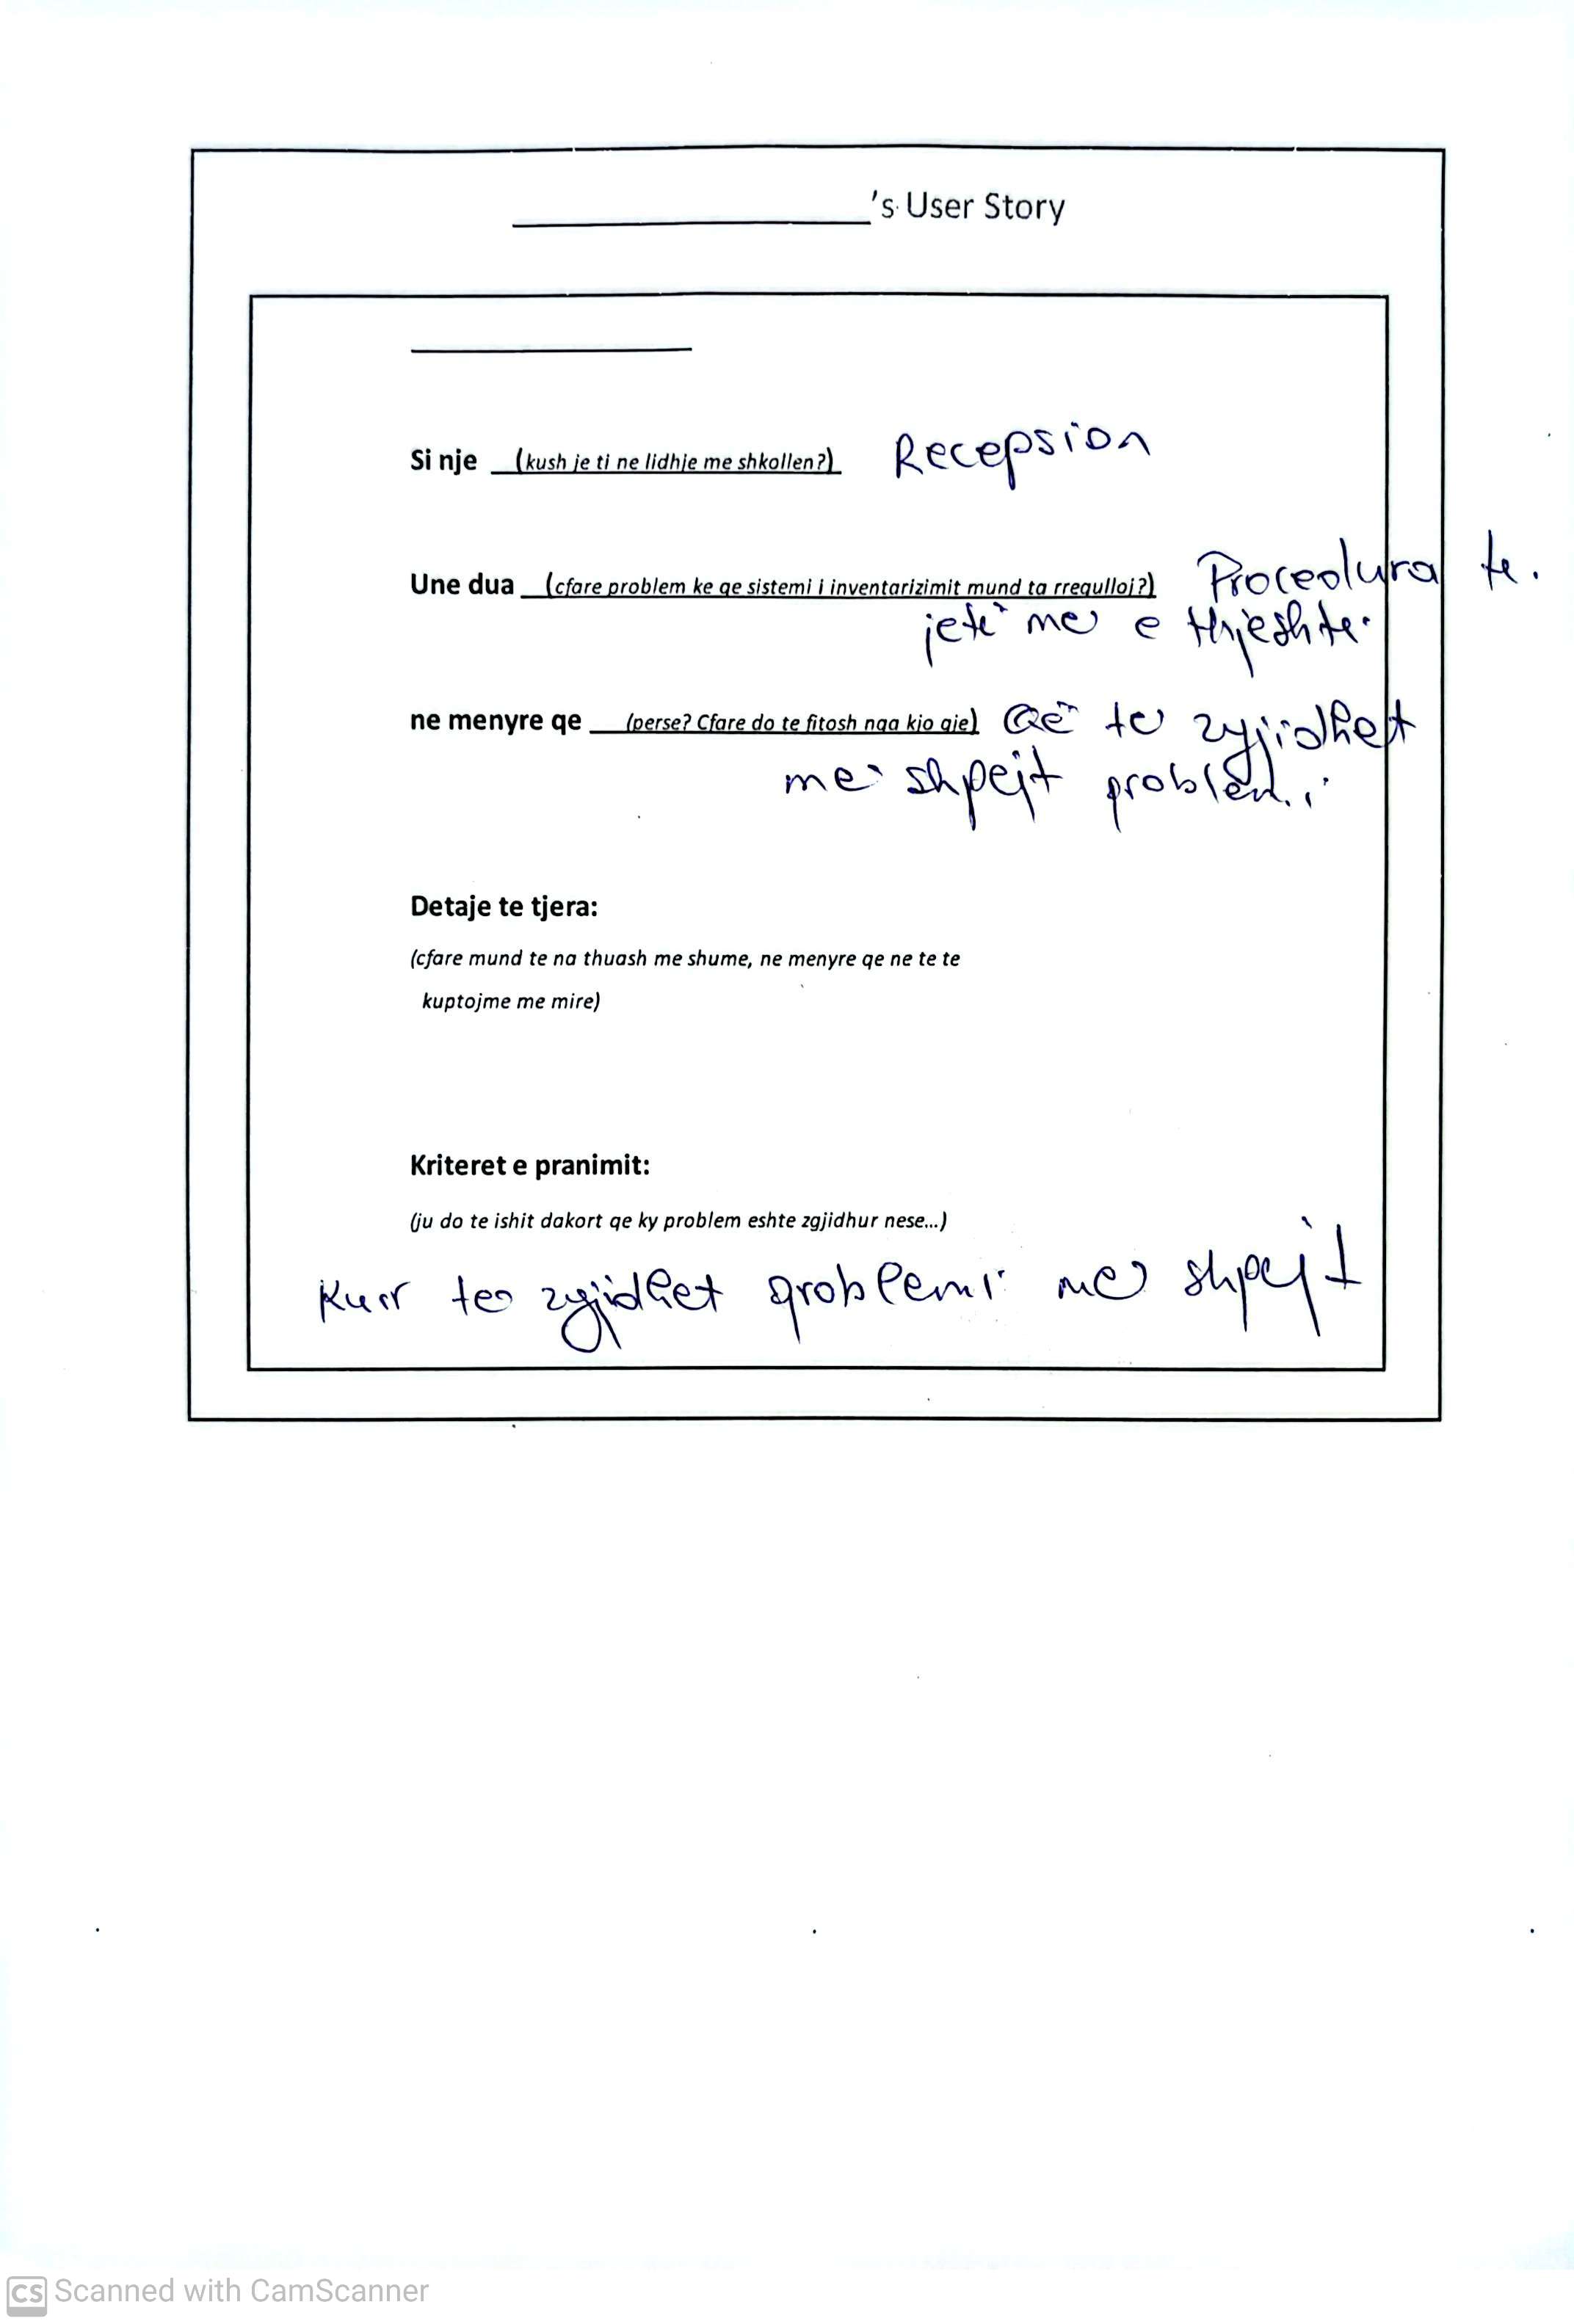 's User Story
Si nje (kush je ti ne lidhje me shkollen?) Recepsion
Une dua (cfare problem ke qe sistemi i inventarizimit mund ta rregulloj?) Procedura te
jetë me e thjeshte.
ne menyre qe (perse? Cfare do te fitosh nga kjo gje) Që te zgjidhet
me shpejt problemi
Detaje te tjera:
(cfare mund te na thuash me shume, ne menyre qe ne te te
kuptojme me mire)
Kriteret e pranimit:
(ju do te ishit dakort qe ky problem eshte zgjidhur nese...)
Kur te zgjidhet problemi me shpejt
CS Scanned with CamScanner